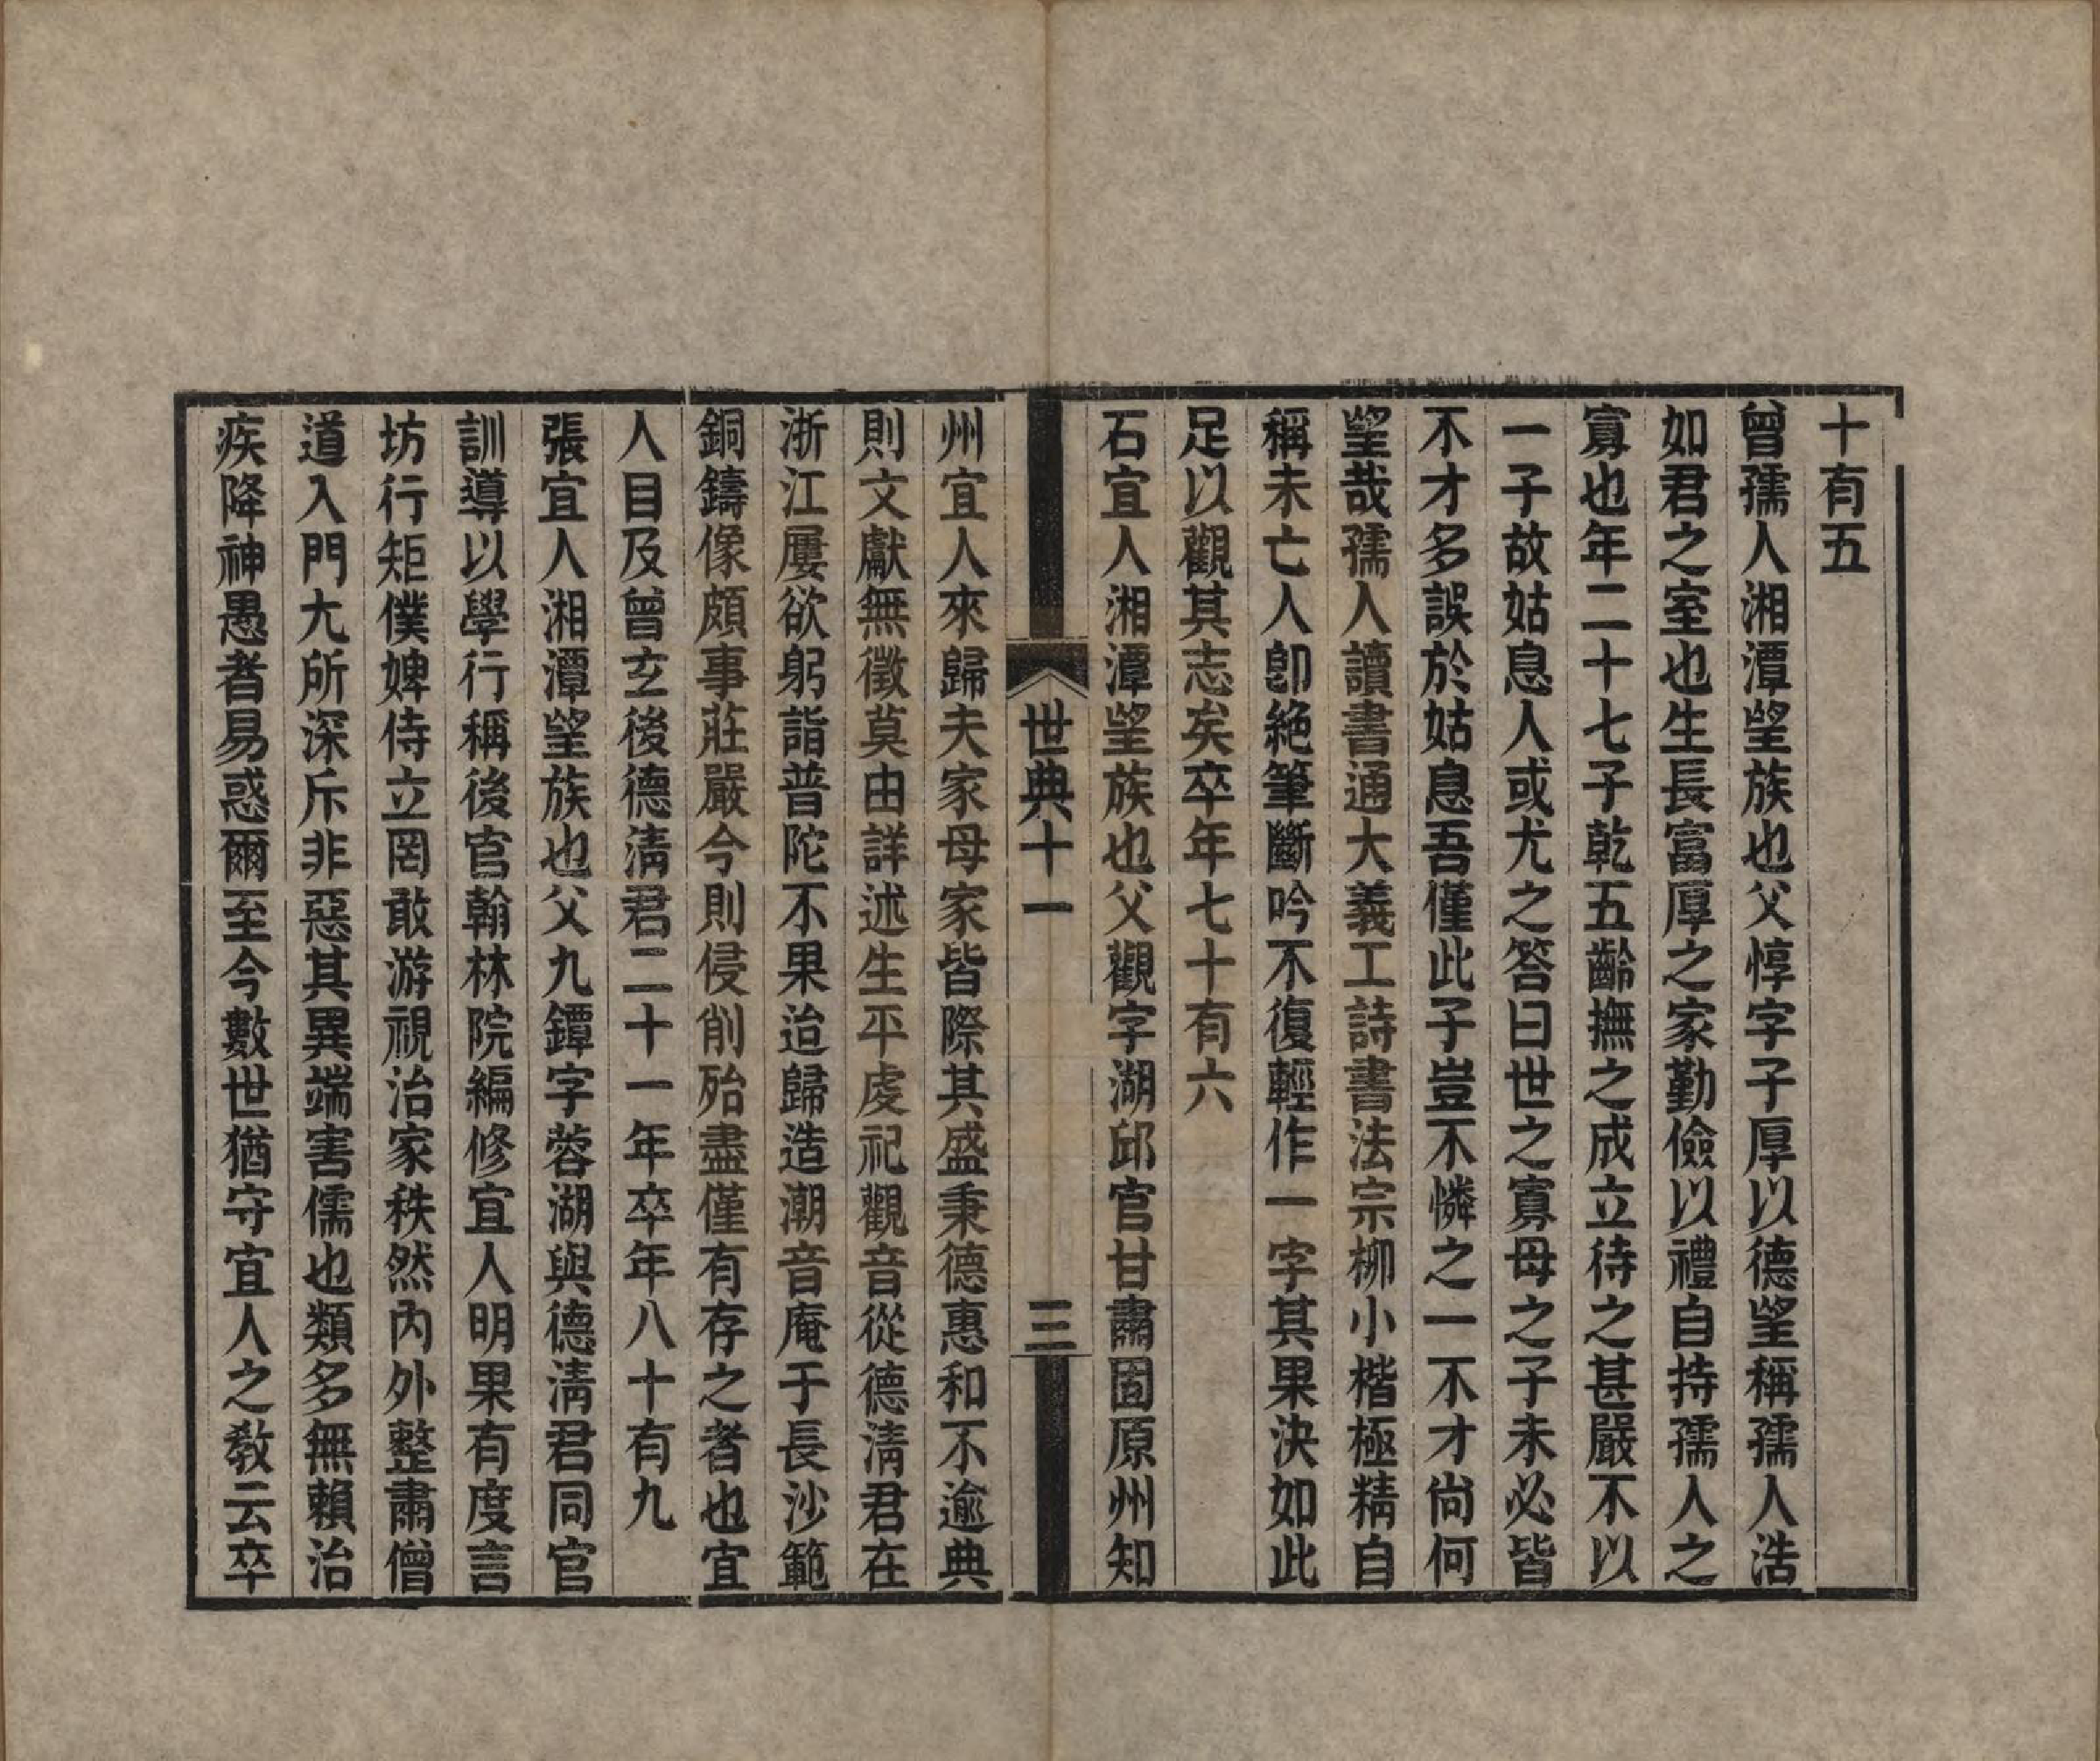 十有五
曾孺人湘潭望族也父惇字子厚以德望稱孺人浩
如君之室也生長富厚之家勤儉以禮自持孺人之
寡也年二十七子乾五齡撫之成立待之甚嚴不以
一子故姑息人或尤之答曰世之寡母之子未必皆
不才多誤於姑息吾僅此子豈不憐之一不才尙何
望哉孺人讀書通大義工詩書法宗柳小楷極精自
稱未亡人卽絕筆斷吟不復輕作一字其果決如此
足以觀其志矣卒年七十有六
石宜人湘潭望族也父觀字湖邱官甘肅固原州知
世典十一
三
州宜人來歸夫家母家皆際其盛秉德惠和不逾典
則文獻無徵莫由詳述生平虔祀觀音從德淸君在
浙江屢欲躬詣普陀不果迨歸造潮音庵于長沙範
銅鑄像頗事莊嚴今則侵削殆盡僅有存之者也宜
人目及曾玄後德淸君二十一年卒年八十有九
張宜人湘潭望族也父九鐔字蓉湖與德淸君同官
訓導以學行稱後官翰林院編修宜人明果有度言
坊行矩僕婢侍立罔敢游視治家秩然內外整肅僧
道入門尢所深斥非惡其異端害儒也類多無賴治
疾降神愚者易惑爾至今數世猶守宜人之敎云卒